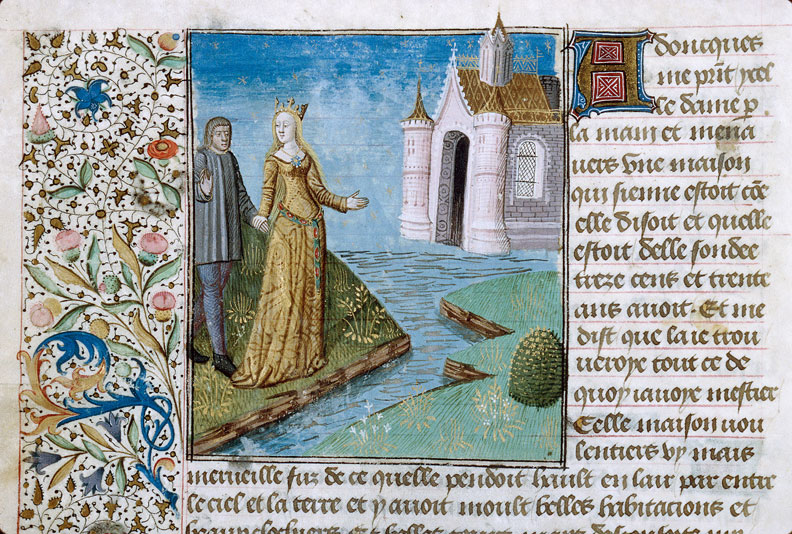 Adoncques
me prīt ycel
le dame p
la main et mena
vers vne maison
qui sienne estoit cōe
elle disoit et quelle
estoit delle fondee
treze cens et trente
ans auoit. Et me
dist que la ie trou
ueroye tout ce de
quoy iauoye mestier
Celle maison vou
lentiers vy mais
merueille fuz de ce quelle pendoit hault en lair par entre
le ciel et la terre et y auoit moult belles habitacions et